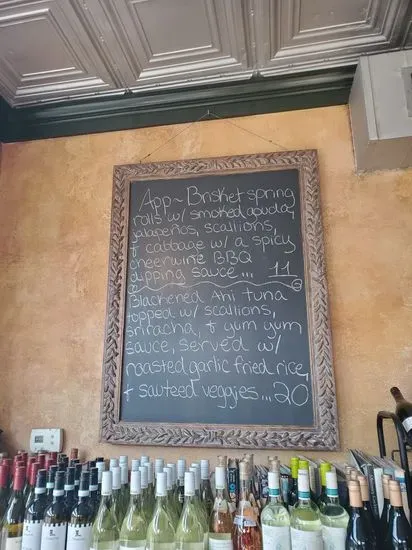 App~ Brisket spring
rolls w/ smoked gouda,
jalapeños, scallions,
+ cabbage w/ a spicy
cheerwine BBQ
dipping sauce... 11
Blackened Ahi tuna
topped w/ scallions,
sriracha, + yum yum
sauce, served w/
roasted garlic fried rice,
+ sauteed veggies...20